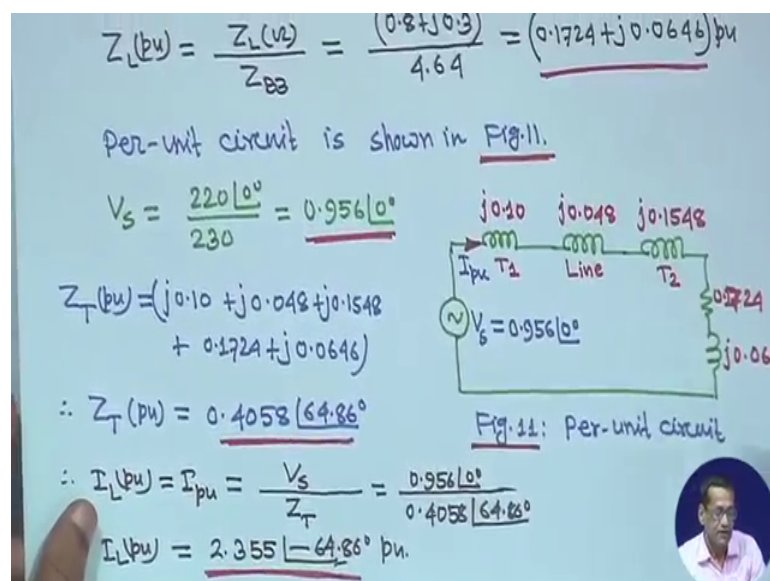 Z_L(pu) = Z_L(Ω) / Z_B3 = (0.8+j0.3) / 4.64 = (0.1724+j0.0646) pu
Per-unit circuit is shown in Fig.11.
V_S = 220∠0° / 230 = 0.956∠0°
Z_T(pu) = (j0.10 + j0.048 + j0.1548
+ 0.1724 + j0.0646)
∴ Z_T(pu) = 0.4058∠64.86°
∴ I_L(pu) = I_pu = V_S / Z_T = 0.956∠0° / 0.4058∠64.86°
I_L(pu) = 2.355∠-64.86° pu.
j0.10 j0.048 j0.1548
I_pu T1 Line T2
0.1724
V_S = 0.956∠0°
j0.06
Fig.11: Per-unit circuit